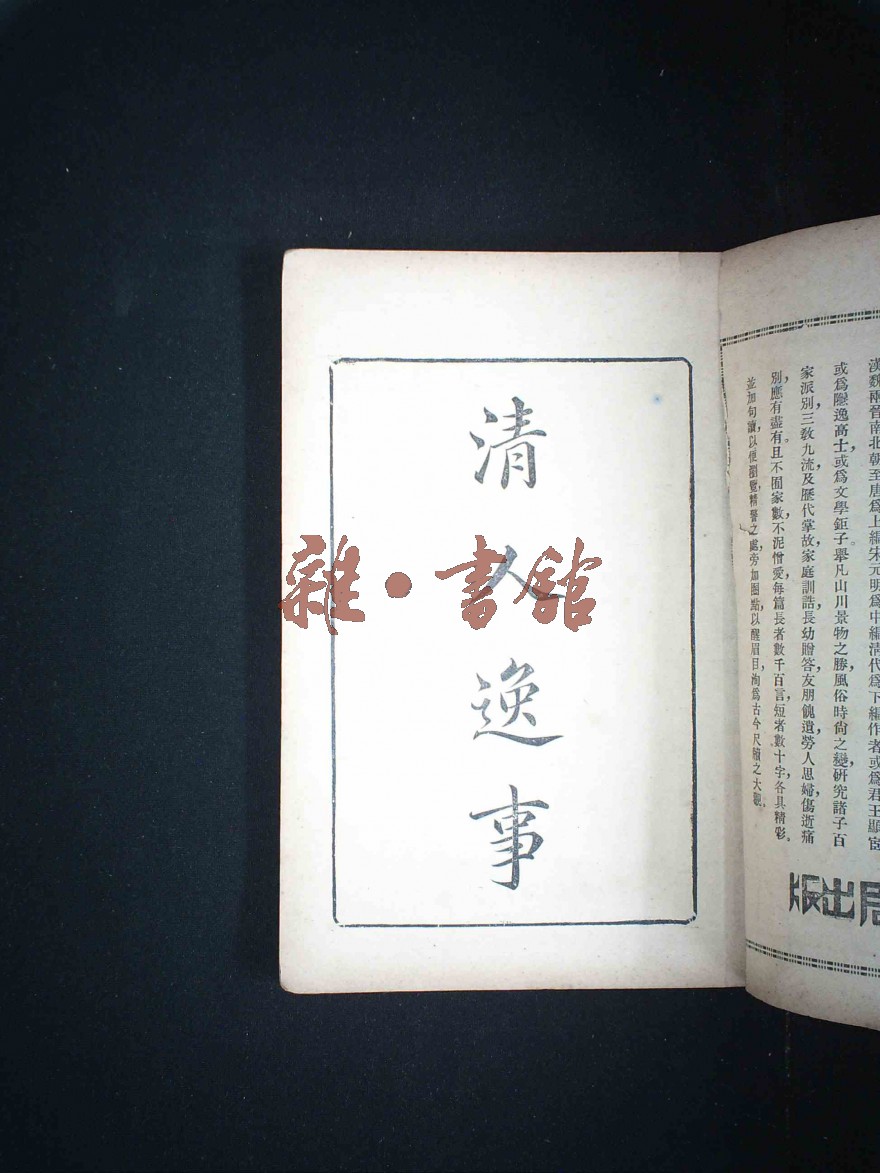 漢魏兩晉南北朝至唐爲上編宋元明爲中編清代爲下編作者或爲君王顯宦
或爲隱逸高士，或爲文學鉅子。舉凡山川景物之勝，風俗時尙之變，硏究諸子百
家派別，三敎九流，及歷代掌故，家庭訓誥，長幼贈答，友朋餽遺，勞人思婦，傷逝痛
別，應有盡有。且不囿家數，不泥憎愛，每篇長者數千百言，短者數十字，各具精彩。
並加句讀，以便瀏覽，精警之處，旁加圈點，以醒眉目，洵爲古今尺牘之大觀。
局出版
清人逸事
雜·書館